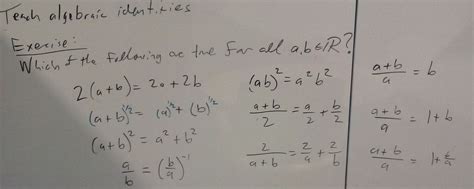 Teach algebraic identities
Exercise:
Which of the following are true for all a,b∈ℝ?
2(a+b) = 2a + 2b
(a+b)^{1/2} = (a)^{1/2} + (b)^{1/2}
(a+b)² = a² + b²
a/b = (b/a)^{-1}
(ab)² = a²b²
(a+b)/2 = a/2 + b/2
2/(a+b) = 2/a + 2/b
(a+b)/a = b
(a+b)/a = 1+b
(a+b)/a = 1+